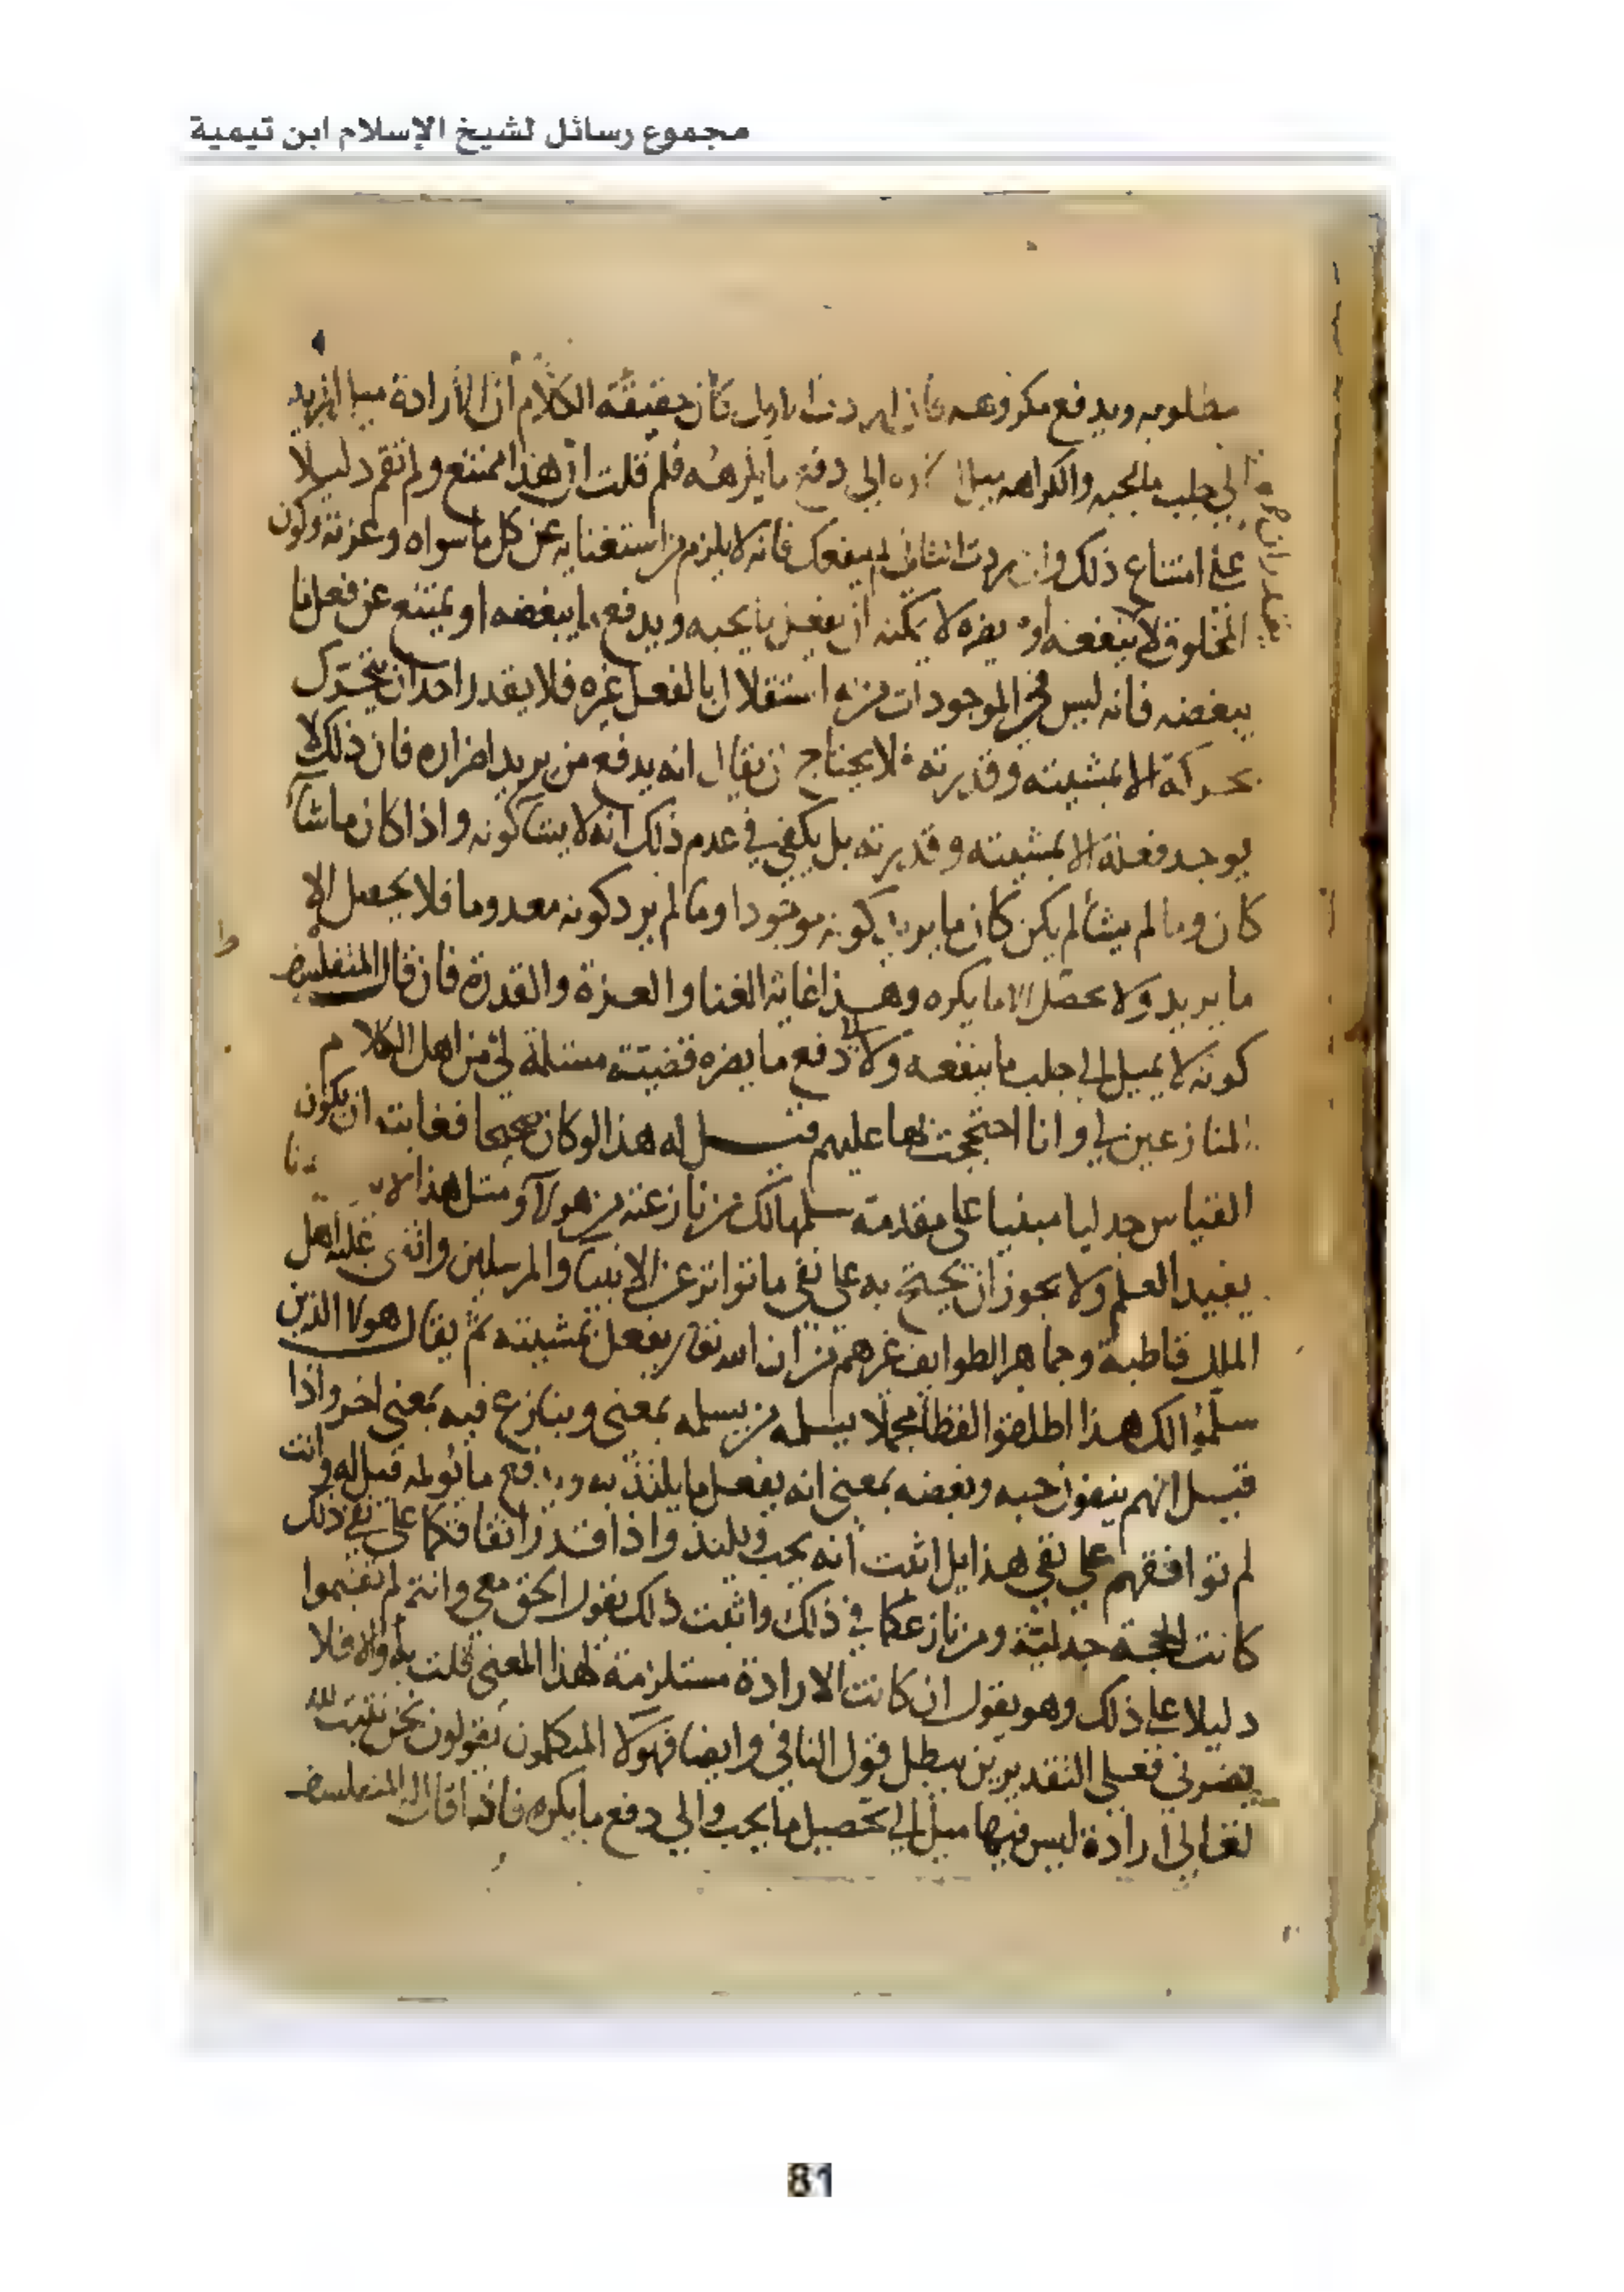 مجموع رسائل لشيخ الإسلام ابن تيمية
مطلوبه ويدفع مكروهه فان اردت الاول كان حقيقة الكلام ان الارادة ميل المريد
الى جلب ما يحبه والكراهه ميل الى دفع ما يكرهه فلم قلت ان هذا ممتنع ولم تقم دليلا
على امتناع ذلك وان اردت الثاني لم ينفعك فانه لا يلزم من استغنايه عن كل ما سواه وعزته وكون
المخلوق لا ينفعه او يضره لا يمكنه ان يفعل ما يحبه ويدفع ما يبغضه او يمتنع عن فعل ما
يبغضه فانه ليس في الموجودات من له استقلال بالفعل غيره فلا يقدر احد ان يتحرك
بحركة الا بمشيته وقدرته فلا يحتاج ان يقال انه يدفع من يريد اضراره فان ذلك لا
يوجد فعله الا بمشيته وقدرته بل يكفي في عدم ذلك انه لا يشآ كونه واذا كان ما شآ
كان وما لم يشأ لم يكن كان ما يريد كونه موجودا وما لم يرد كونه معدوما فلا يحصل الا
ما يريد ولا يحصل الا ما يكره وهذا غاية الغنا والعزة والقدرة فان قال المتفلسف
كونه لا يميل الى جلب ما ينفعه ولا الى دفع ما يضره قضيته مسلمة لي من اهل الكلام
المنازعين لي وانا احتججت بها عليهم قيل له هذا لو كان صحيحا فغايته ان يكون
القياس جدليا مبنيا على مقدمة سلمها لك من نازعته من هولآ ومثل هذا لا
يفيد العلم ولا يجوز ان يحتج به على نفي ما تواتر عن الانبيآ والمرسلين واتفق عليه اهل
الملل قاطبة وجماهير الطوايف غيرهم من ان الله تعالى يفعل بمشيته ثم يقال هولا الذين
سلموا لك هذا اطلقوا لفظا مجملا يسلمه من يسلمه بمعنى وينازع فيه بمعنى اخر واذا
قيل انهم ينفون حبه وبغضه بمعنى انه يفعل ما يلتذ به ويدفع ما يؤلمه قيل له وانت
لم توافقهم على نفي هذا بل اثبت انه يحب ويلتذ واذا قدر اتفاقكما على نفي ذلك
كانت الحجة جدلية ومن نازعكما في ذلك واثبت ذلك يقول الحق معي وانتم لم تقيموا
دليلا على ذلك وهو يقول ان كانت الارادة مستلزمة لهذا المعنى قلت به والا فلا
يضرني فعلى التقديرين يبطل قول النافي وايضا فهولآ المتكلمون يقولون نحن نثبت لله
تعالى ارادة ليس فيها ميل الى تحصيل ما يحب والى دفع ما يكره فاذا قال المتفلسف
81